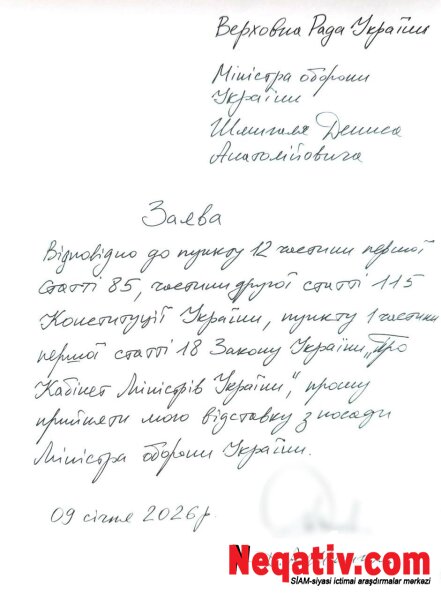 Верховна Рада України
Міністра оборони
України
Шмигаля Дениса
Анатолійовича
Заява
Відповідно до пункту 12 частини першої
статті 85, частини другої статті 115
Конституції України, пункту 1 частини
першої статті 18 Закону України „Про
Кабінет Міністрів України”, прошу
прийняти мою відставку з посади
Міністра оборони України.
09 січня 2026 р.
Neqativ.com
SİAM-siyasi ictimai araşdırmalar mərkəzi